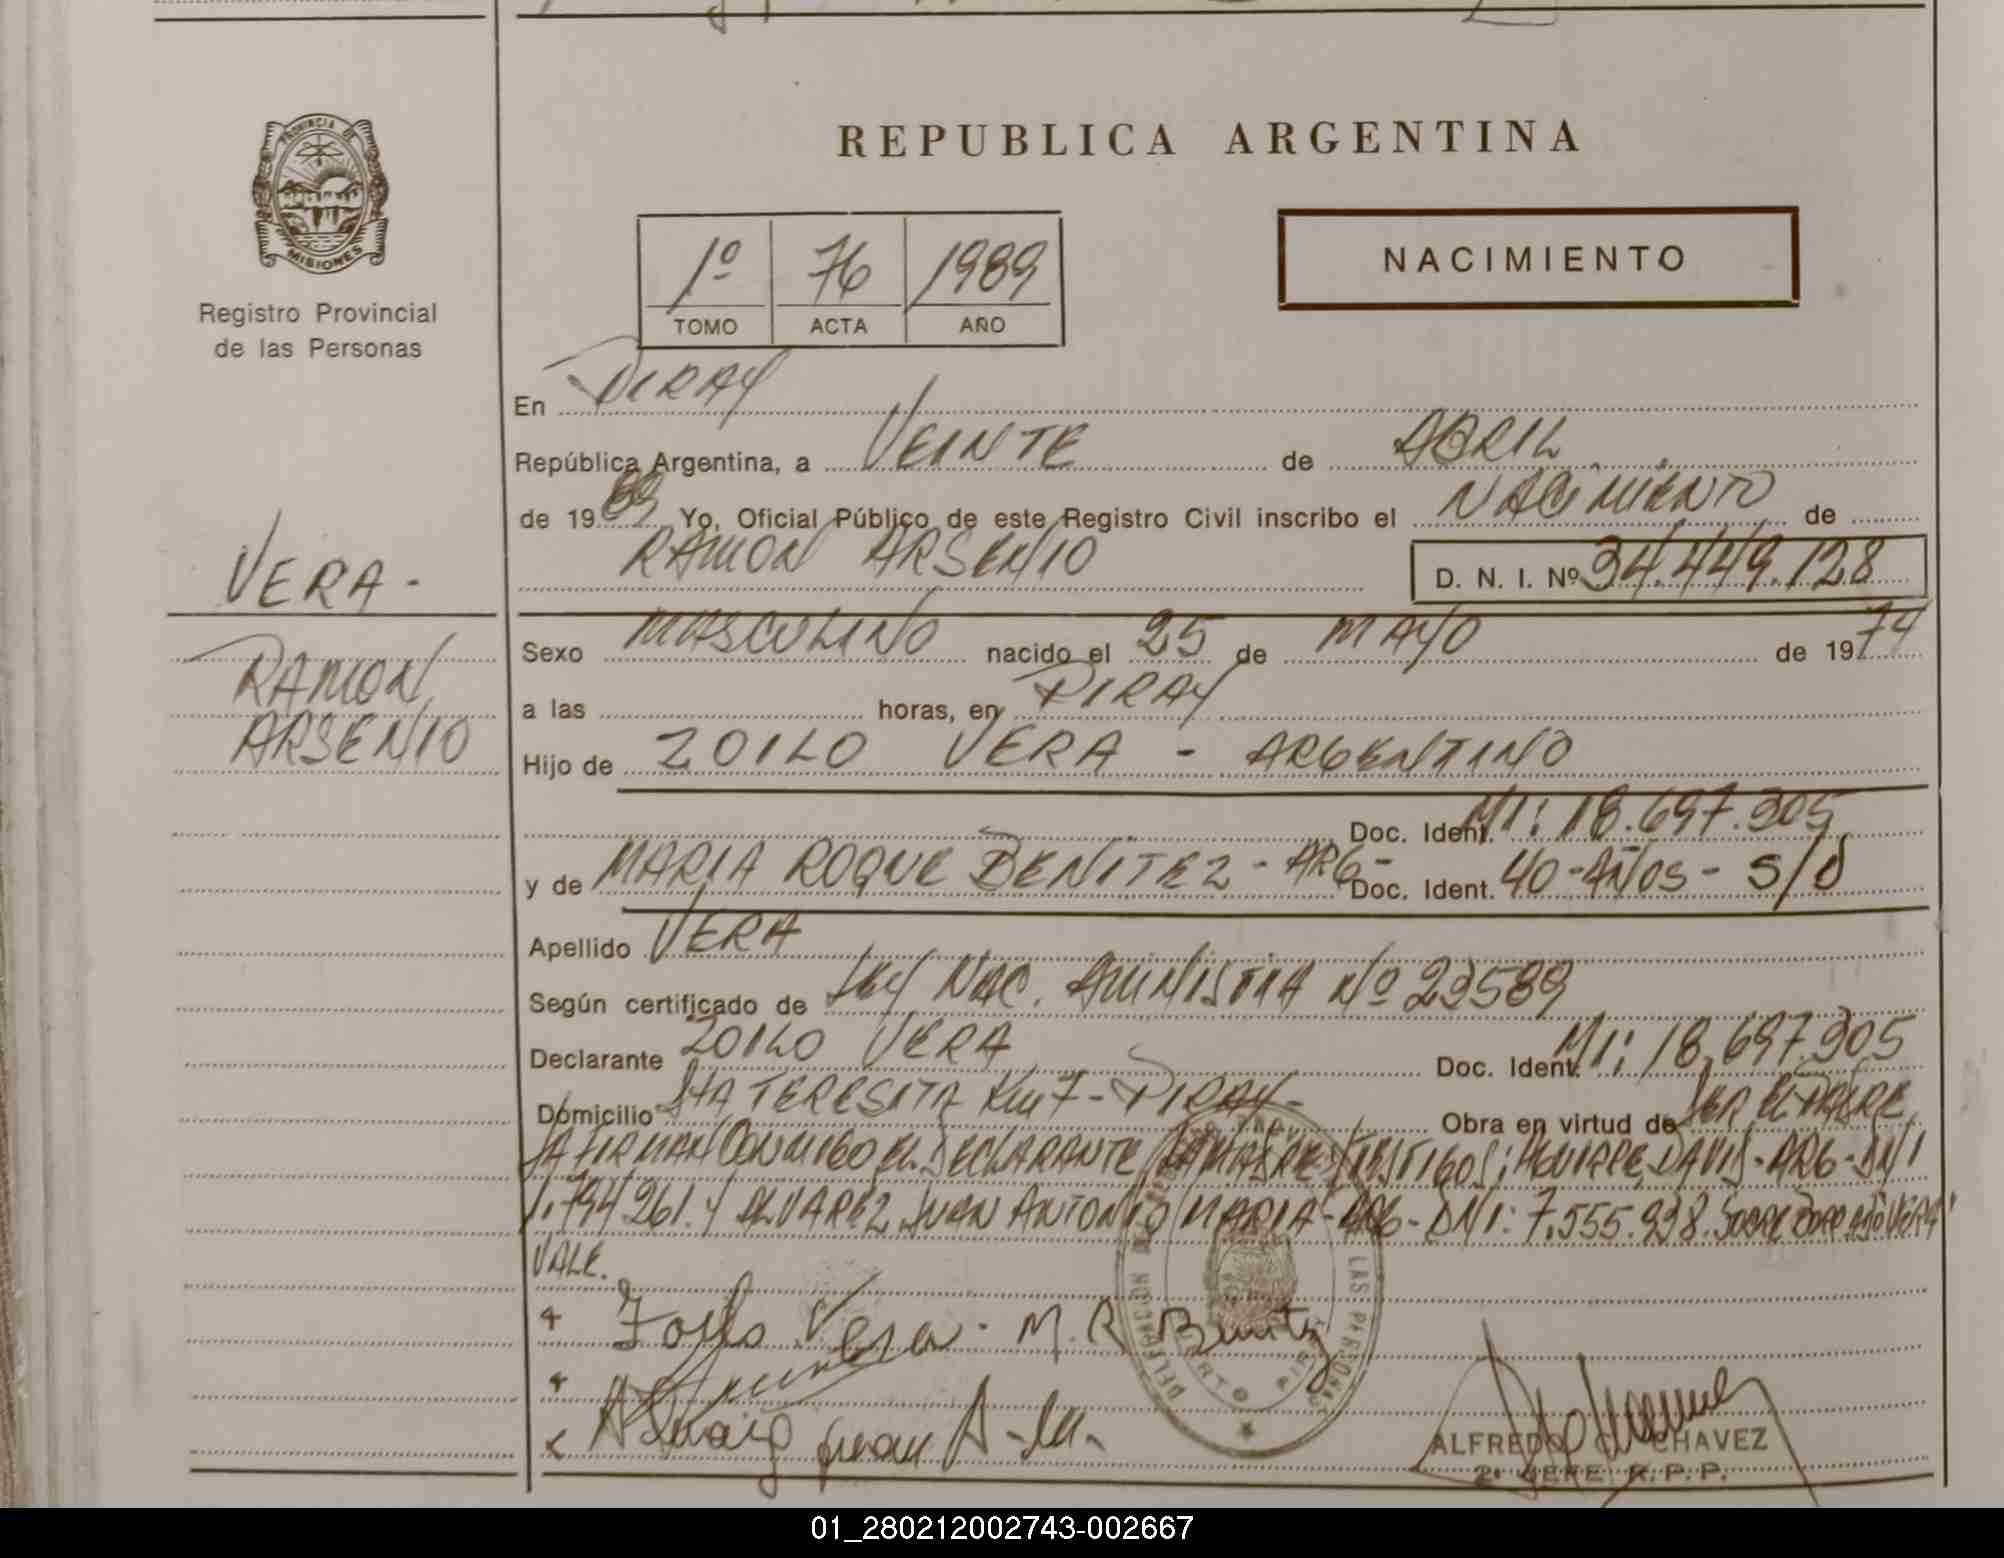 REPUBLICA ARGENTINA
PROVINCIA DE
MISIONES
Registro Provincial
de las Personas
1º 76 1989
TOMO ACTA AÑO
NACIMIENTO
En PIRAY
República Argentina, a VEINTE de ABRIL
de 1989 Yo, Oficial Público de este Registro Civil inscribo el NACIMIENTO de
RAMON ARSENIO D. N. I. Nº 34.449.128
VERA -
RAMON
ARSENIO
Sexo MASCULINO nacido el 25 de MAYO de 1974
a las horas, en PIRAY
Hijo de ZOILO VERA - ARGENTINO
Doc. Ident. MI: 18.697.305
y de MARIA ROQUE BENITEZ - ARG - Doc. Ident. 40-AÑOS - S/D
Apellido VERA
Según certificado de LEY NAC. AMNISTIA Nº 23589
Declarante ZOILO VERA Doc. Ident. MI: 18.697.305
Domicilio STA TERESITA Km 7 - PIRAY - Obra en virtud de SER EL PADRE
FIRMAN CONMIGO EL DECLARANTE LA MADRE TESTIGOS: AGUIRRE DAVIS - ARG - DNI
7.794261. Y ALVAREZ JUAN ANTONIO MARIA - ARG - DNI: 7.555.938. SOBRE BORRADO "VERA"
VALE.
Zoilo Vera. M. R. Benitez
juan A. M.
DELEGACION LAS PERSONAS
PUERTO PIRAY
ALFREDO C. CHAVEZ
2º JEFE R.P.P.
01_280212002743-002667